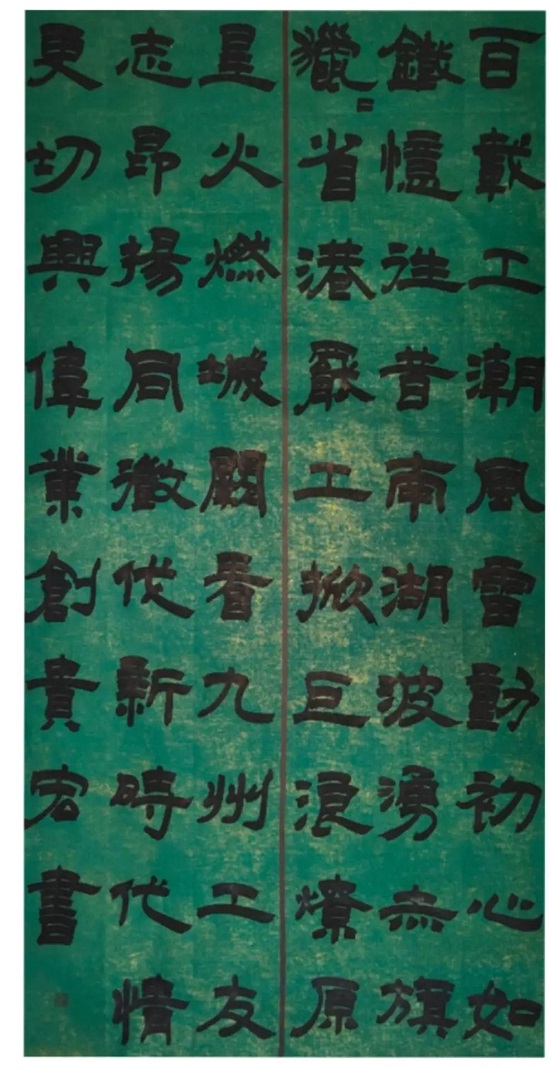 百載工潮風雪動初心如
鐵憶往昔南湖波湧赤旗
獵省港罷工掀巨浪燎原
星火燃城闕看九州工友
志昂揚同徵代新時代情
更切興偉業創貴宏書